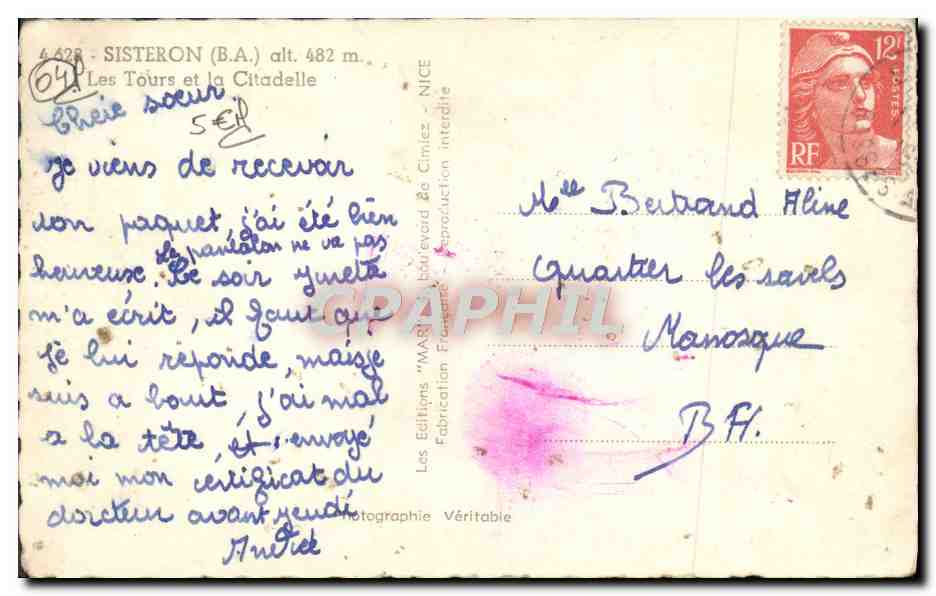 4.628 - SISTERON (B.A.) alt. 482 m.
Les Tours et la Citadelle
04
5 €
Chère sœur.
Je viens de recevoir
ton paquet, j'ai été bien
le pantalon ne va pas
heureuse. Ce soir ginette
m'a écrit, il faut que
je lui réponde, mais je
suis a bout, j'ai mal
a la tête, et envoyé
moi mon certificat du
docteur avant jeudi
Andrée
Les Editions "MAR" boulevard de Cimiez - NICE
Fabrication Française - reproduction interdite
Photographie Véritable
12F
POSTES
RF
Mlle Bertrand Aline
Quartier les savels
Manosque
B.A.
CPAPHIL